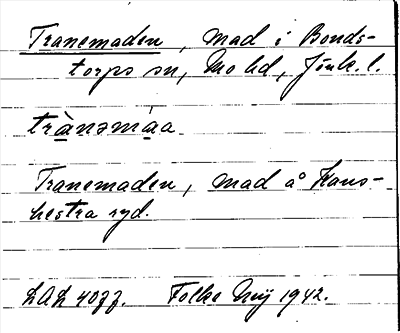 Tranemaden, mad i Bonds-
torps sn, Mo hd, Jönk. l.
trànəmáa
Tranemaden, mad å Hans-
hestra ryd.
LAL 4077. Folke Mÿ 1942.